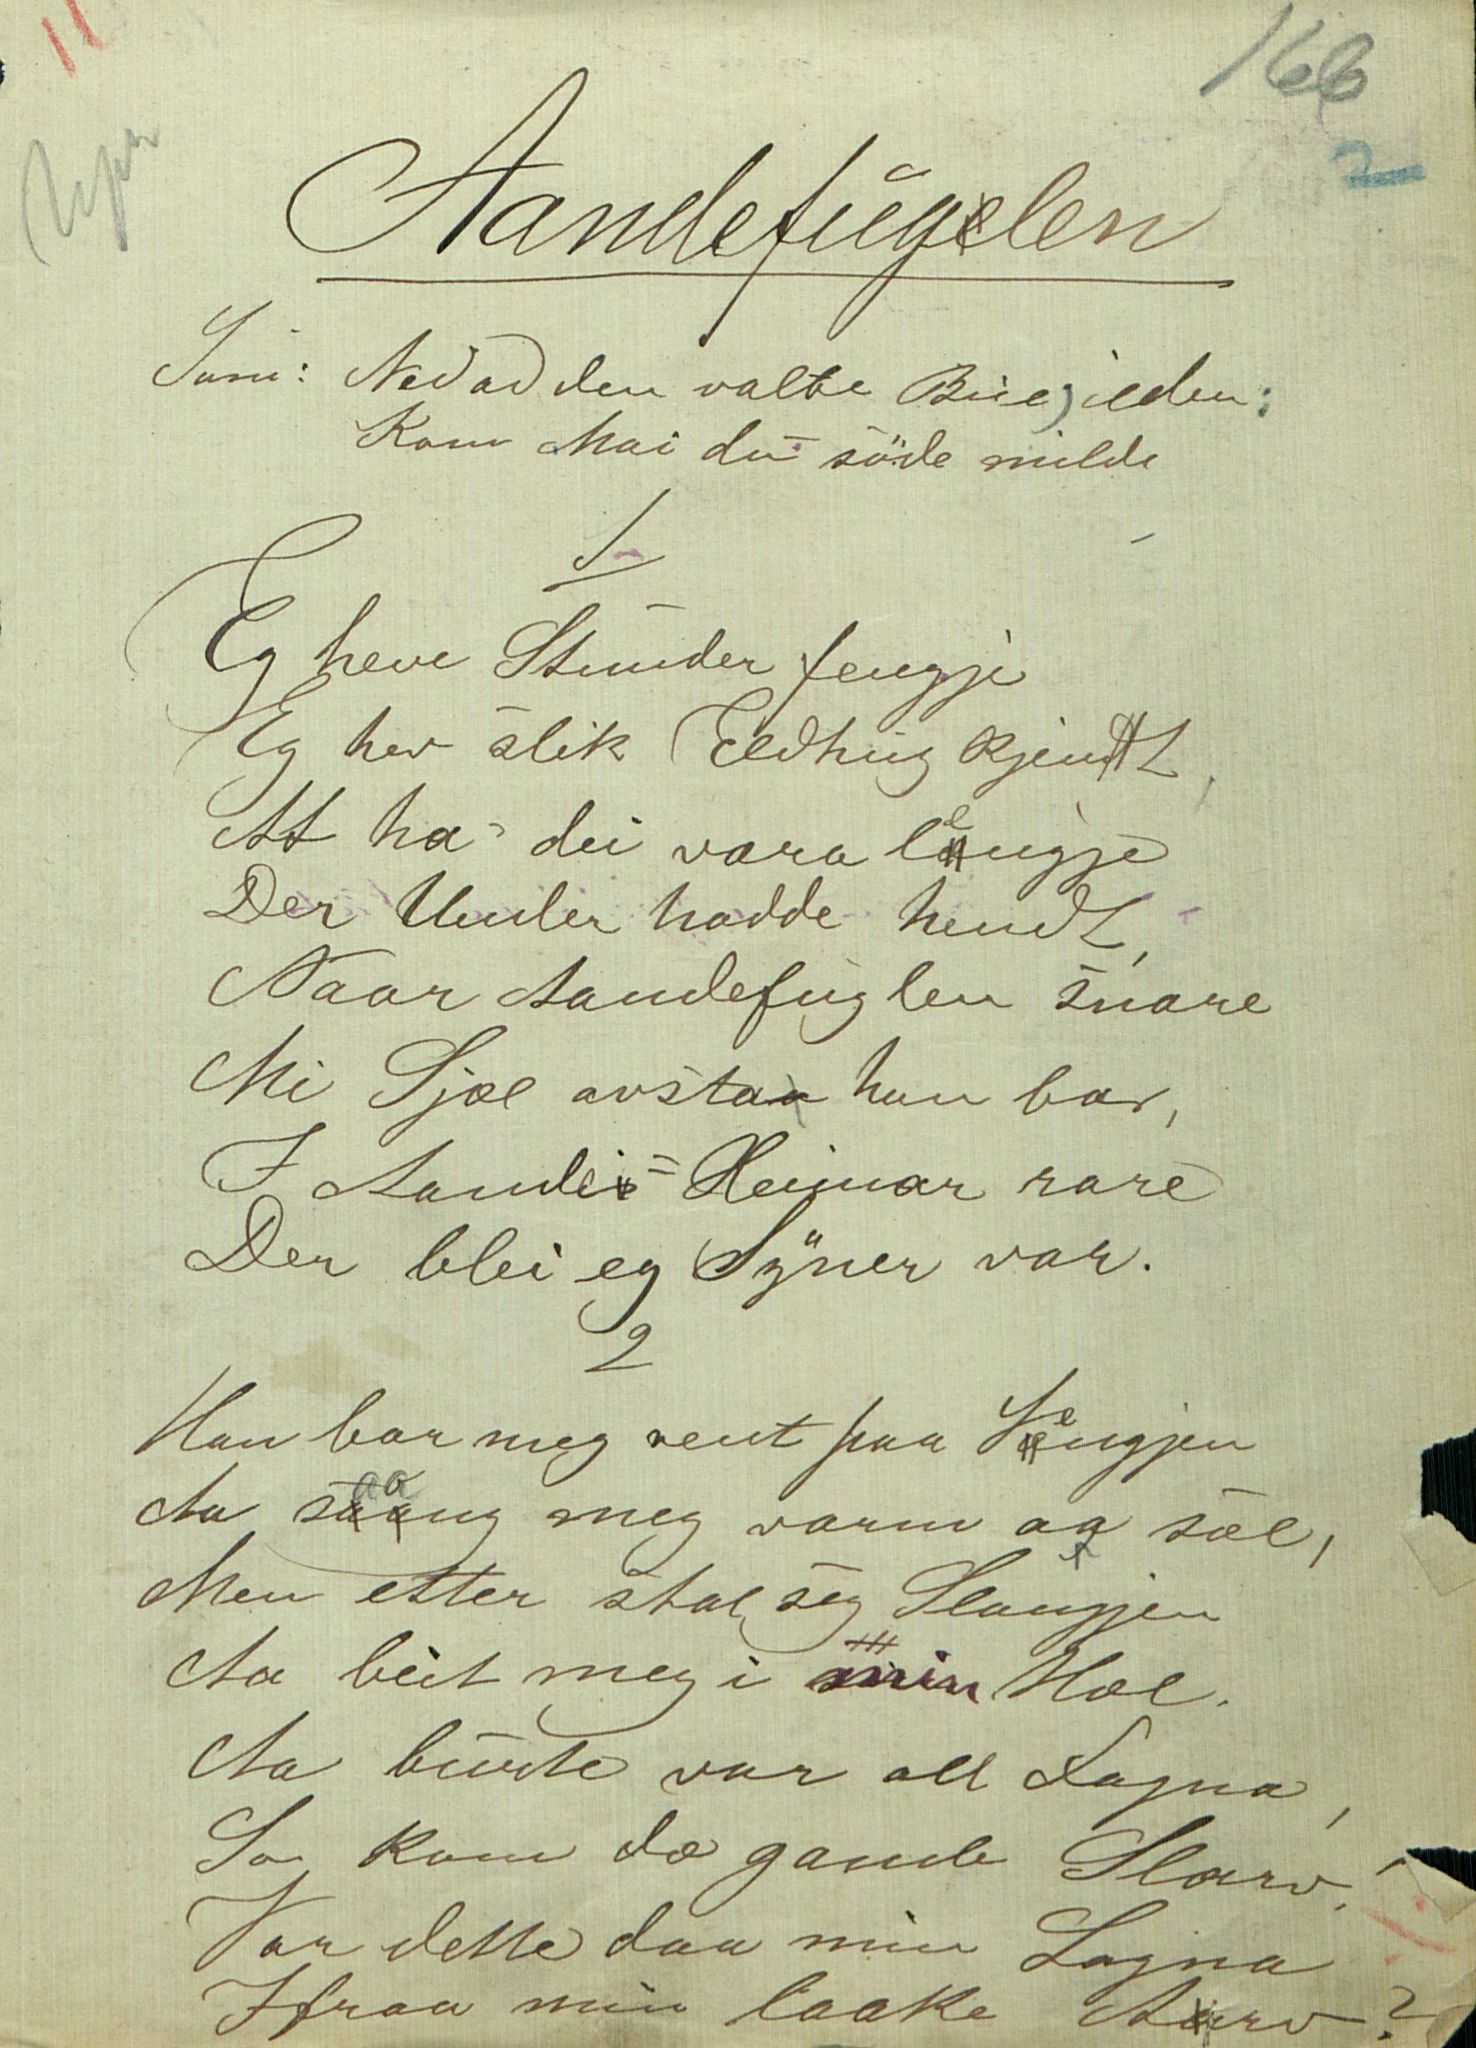 166
2
Aandefuglen
Tone: Ned ad den valte Bue, ilden:
Kom Mai du söde milde
1
Eg heve Stunder fengje
Eg hev slik Eldhug kjendt,
At ha dei vara lengje
Der Under hadde hendt,
Naar Aandefuglen snare
Mi Sjæl avsta han bar,
I Aandei-Heimar rare
Der blei eg Syner var.
2
Han bar meg rent paa Vengjen
Aa saang meg varm aa sæl,
Men etter stal seg Slangjen
Aa beit meg i min Hæl.
Aa burte var all Lagna,
So kom dæ gamle Starv!
Var dette daa min Lagna
Ifraa min laake Arv?